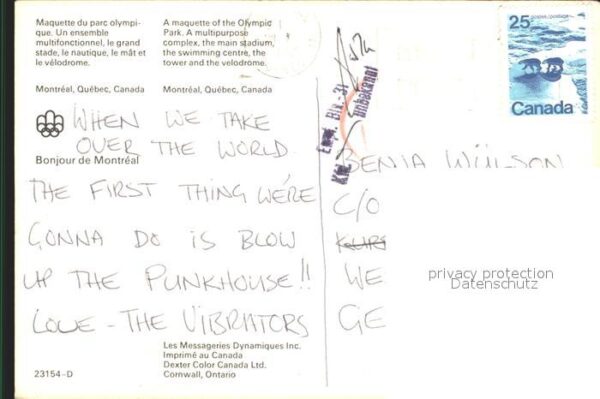 Maquette du parc olympi-
que. Un ensemble
multifonctionnel, le grand
stade, le nautique, le mât et
le vélodrome.
Montréal, Québec, Canada
A maquette of the Olympic
Park. A multipurpose
complex, the main stadium,
the swimming centre, the
tower and the velodrome.
Montréal, Québec, Canada
Bonjour de Montréal
WHEN WE TAKE
OVER THE WORLD
THE FIRST THING WE'RE
GONNA DO IS BLOW
UP THE PUNKHOUSE!!
LOVE - THE VIBRATORS
Les Messageries Dynamiques Inc.
Imprimé au Canada
Dexter Color Canada Ltd.
Cornwall, Ontario
23154-D
25 postes/postage
Canada
Empf. Blk.-31
unbekannt
C/O
WE
GE
privacy protection
Datenschutz